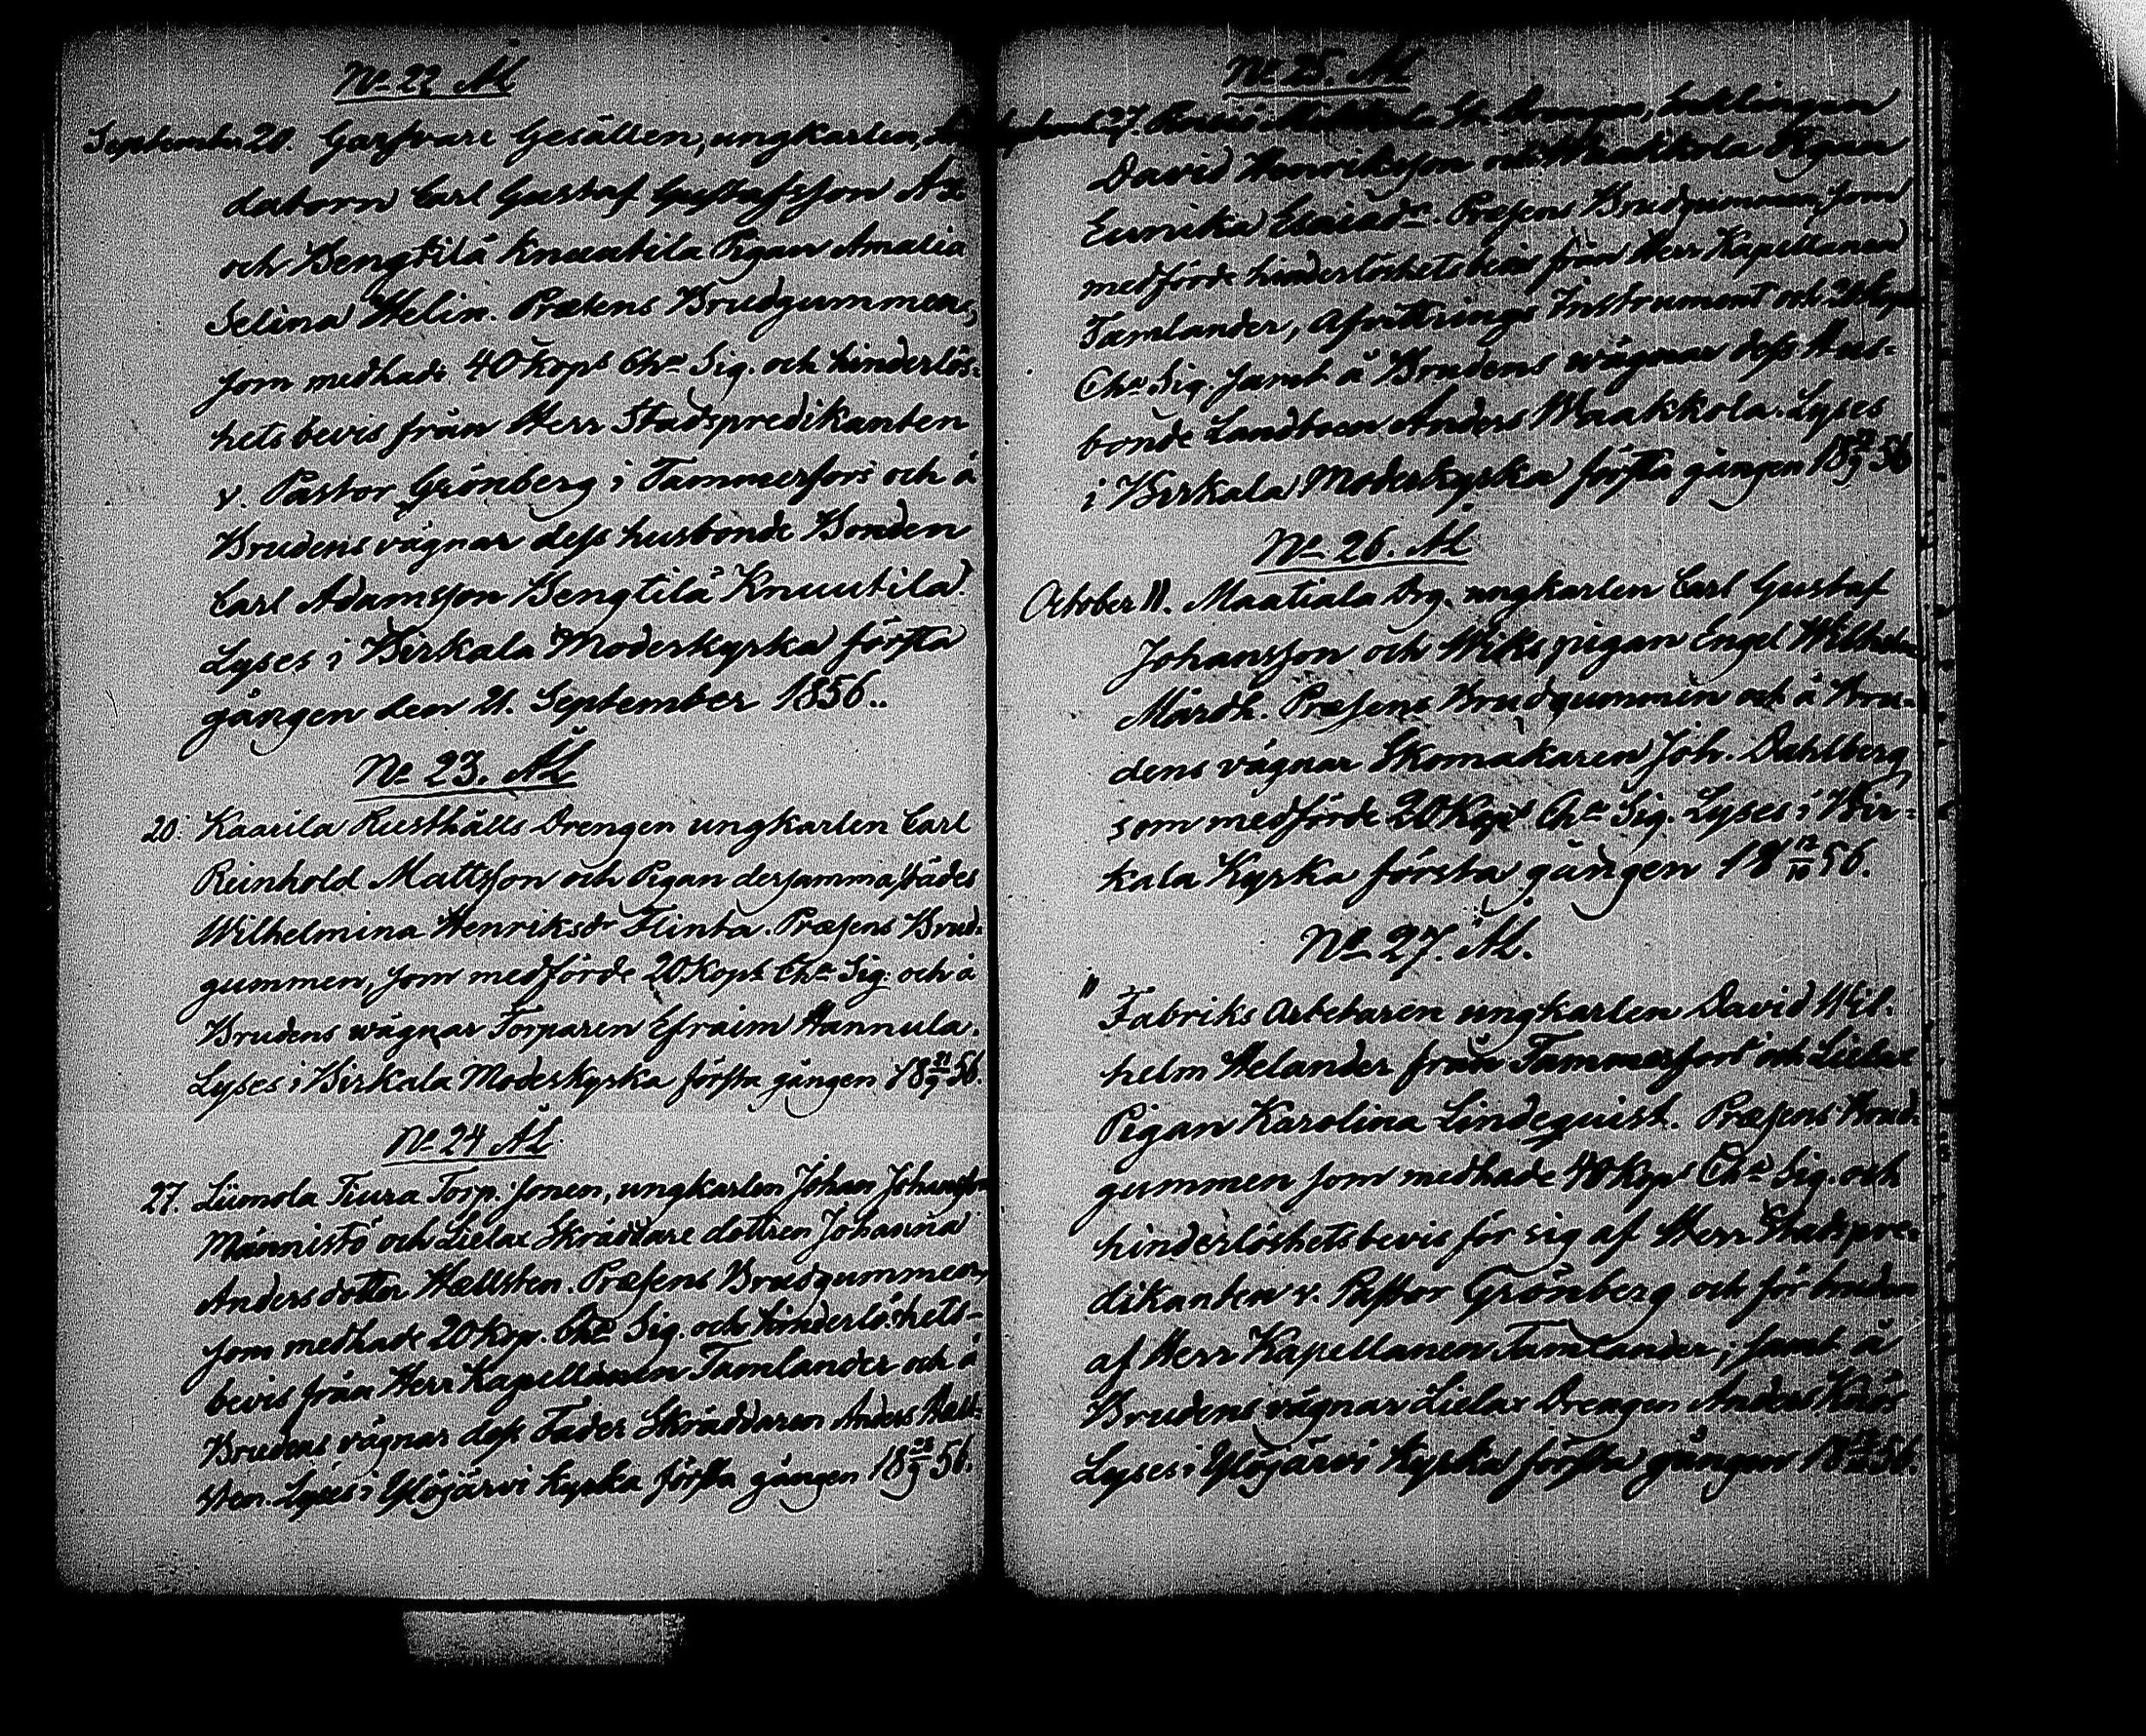 No 22 ÄL
September 20. Garfvare Gesällen, ungkarlen,
datorn Carl Gustaf Gustafsson
och Bengtilä Knuutila Pigan Amalia
Selina Helin. Præsens Brudgummen,
som medhade 40 Kops Cha Sig. och hinderlös-
hets bevis från Herr Stadspredikanten
v. Pastor Grönberg i Tammerfors och å
Brudens vägnar dess husbonde Bonden
Carl Adamsson Bengtilä Knuutila.
Lyses i Birkala Moderkyrka första
gången den 21. September 1856.
No 23. ÄL
20. Kaarila Rusthålls Drengen ungkarlen Carl
Reinhold Mattsson och Pigan dersammastädes
Wilhelmina Henriksdr Flinta. Præsens Brud-
gummen, som medförde 20 Kops Cha Sig. och å
Brudens wägnar Torparen Efraim Hannula.
Lyses i Birkala Moderkyrka första gången 18 21/9 56.
No 24 ÄL
27. Liimola Tiura Torp. sonen, ungkarlen Johan Johansson
Männistö och Lielax Skräddare dottren Johanna
Anders dotter Hællsten. Præsens Brudgummen,
som medhade 20 Kop. Cha Sig. och hinderlöshets-
bevis från Herr Kapellanen Tamlander och å
Brudens vägnar dess Fader Skräddaren Anders Hæll-
sten. Lyses i Ylöjärvi kyrka första gången 18 28/9 56.
No 25. ÄL
27. enklingen
David Henriksson och Waakkola Pigan
Eunika Esaiadr. Præsens Brudgummen, som
medförde hinderlöshetsbevis från Herr Kapellanen
Tamlander, Afvittrings Instrument och 20 Kops
Cha Sig. samt å Brudens wägnar dess Hus-
bonde Landboen Anders Waakkola. Lyses
i Birkala Moderkyrka första gången 18 28/9 56
No 26. ÄL
October 11. Maatiala Drg. ungkarlen Carl Gustaf
Johansson och Wiks pigan Engel Wilhelm
Mårdh. Præsens Brudgummen och å Bru-
dens vägnar Skomakaren Joh. Dahlberg
som medförde 20 Kops Cha Sig. Lyses i Bir-
kala Kyrka första gången 18 12/10 56.
No 27. ÄL.
11 Fabriks Arbetaren ungkarlen David Wil-
helm Helander från Tammerfors och Lielax
Pigan Karolina Lindequist. Præsens Brud-
gummen som medhade 40 Kops Cha Sig. och
hinderlöshetsbevis för sig af Herr Stadspre-
dikanten v. Pastor Grönberg och för bruden
af Herr Kapellanen Tamlander; samt å
Brudens vägnar Lielax Drengen Anders
Lyses i Ylöjärvi Kyrka första gången 18 12/10 56.